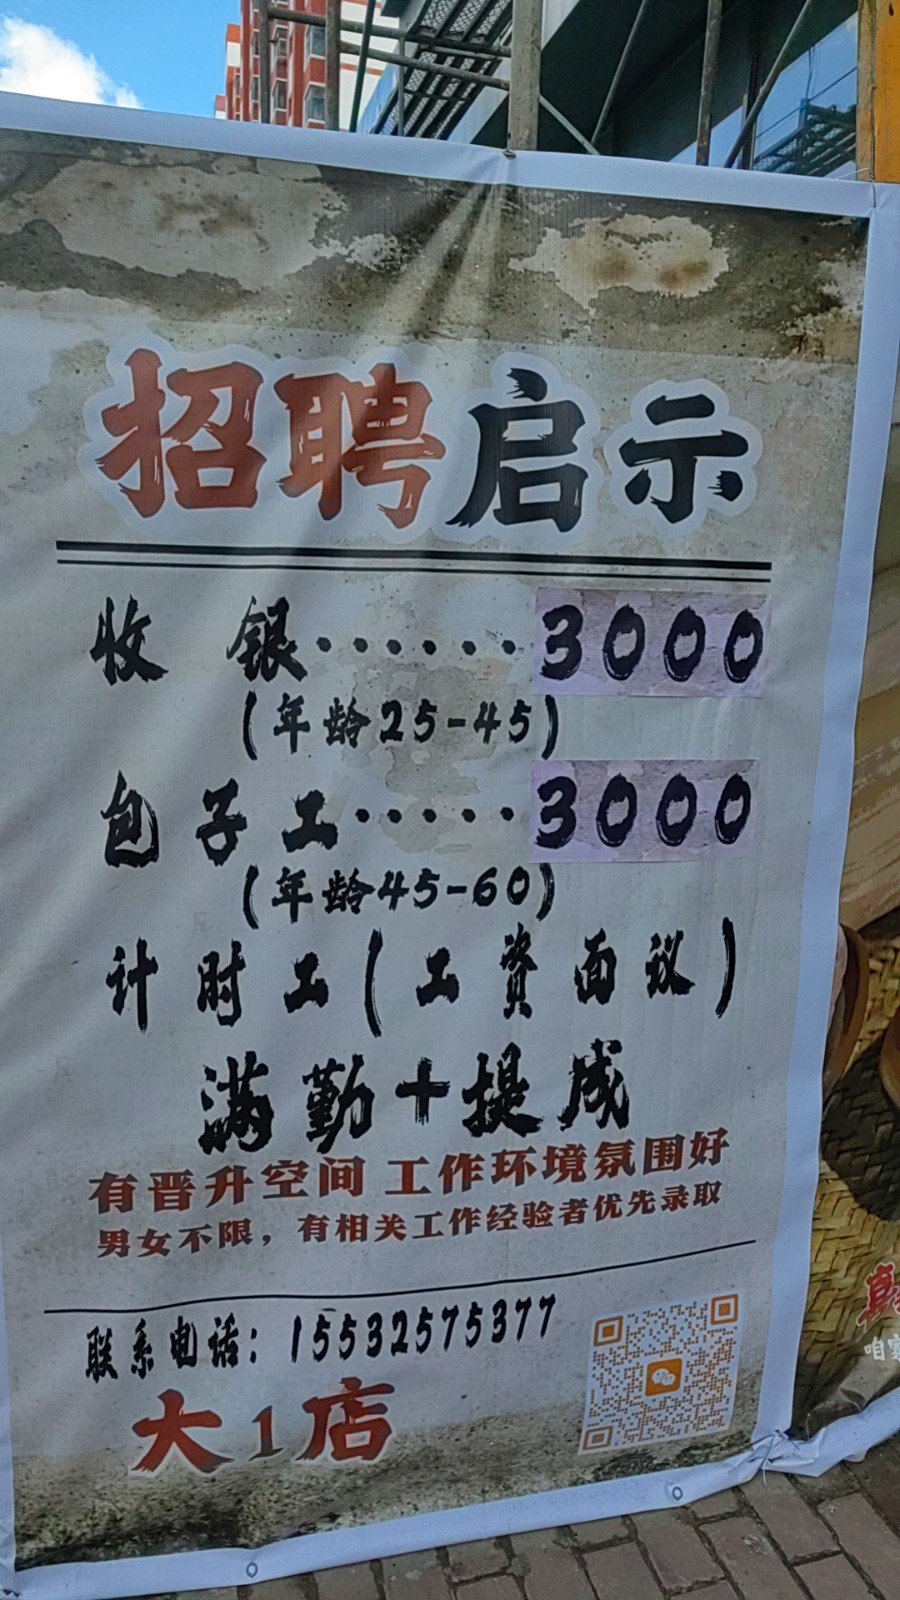 招聘启示
收银······3000
(年龄25-45)
包子工·····3000
(年龄45-60)
计时工(工資面议)
满勤+提成
有晋升空间 工作环境氛围好
男女不限，有相关工作经验者优先录取
联系电话：15532575377
大1店